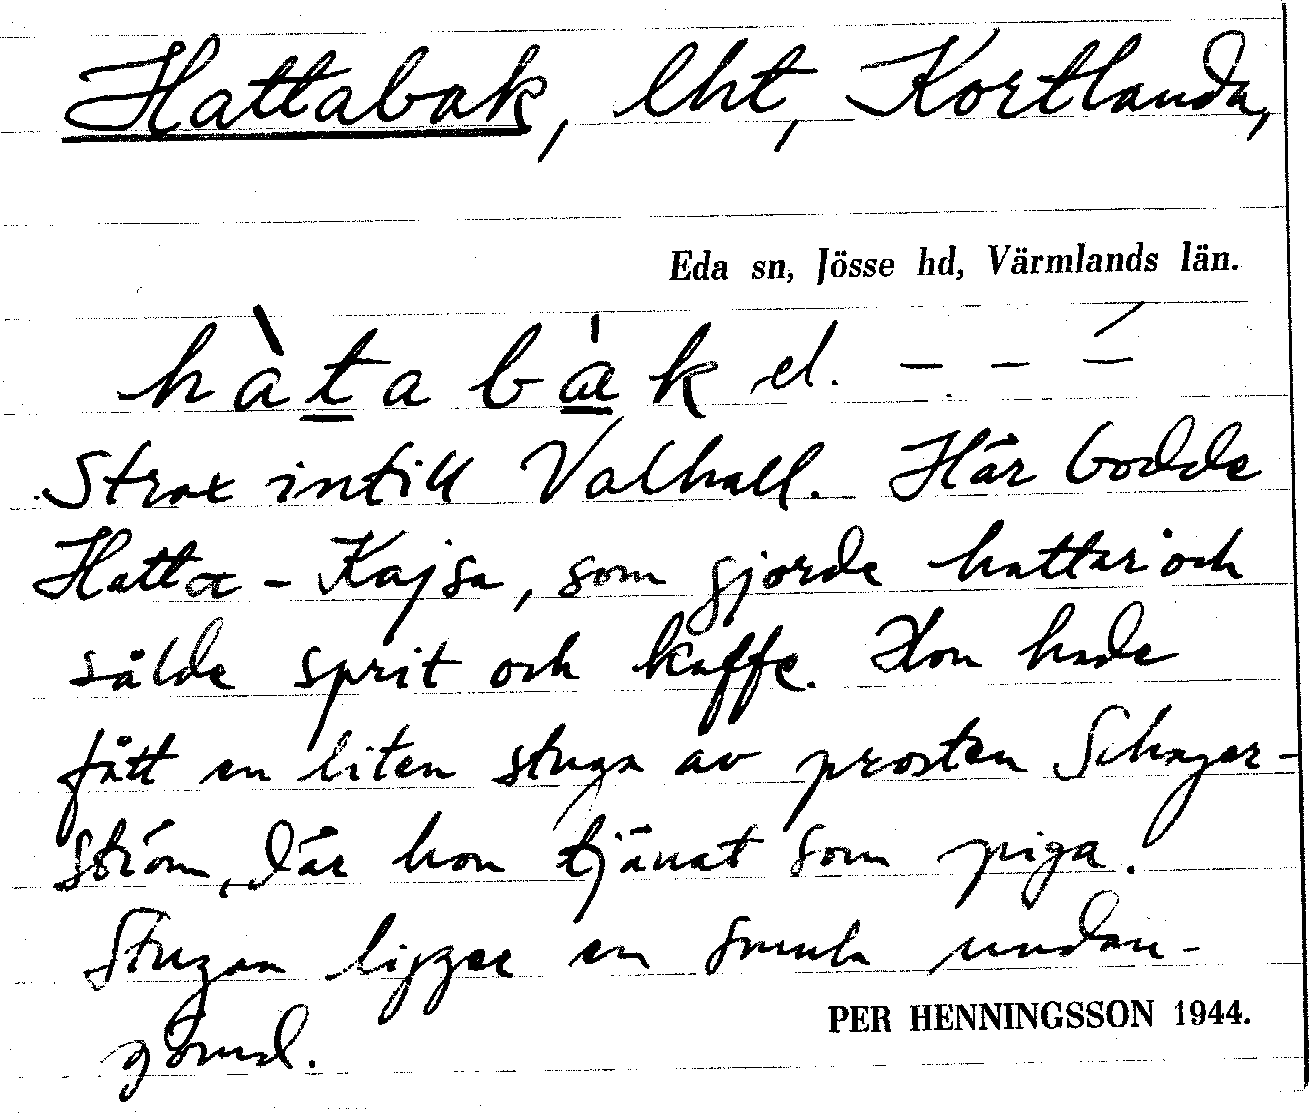 Hattabak, lht, Kortlanda,
Eda sn, Jösse hd, Värmlands län.
hàta bàk el. – – –́
Strax intill Valhall. Här bodde
Hatta-Kajsa, som gjorde hattar och
sålde sprit och kaffe. Hon hade
fått en liten stuga av prosten Schager-
ström, där hon tjänat som piga.
Stugan ligger en smula undan-
gömd.
PER HENNINGSSON 1944.